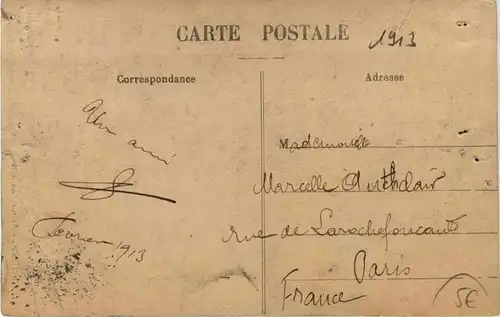 CARTE POSTALE
1913
Correspondance
Adresse
Un ami
Février 1913
Mademoiselle
Marcelle
rue de Larochefoucauld
Paris
France
5€